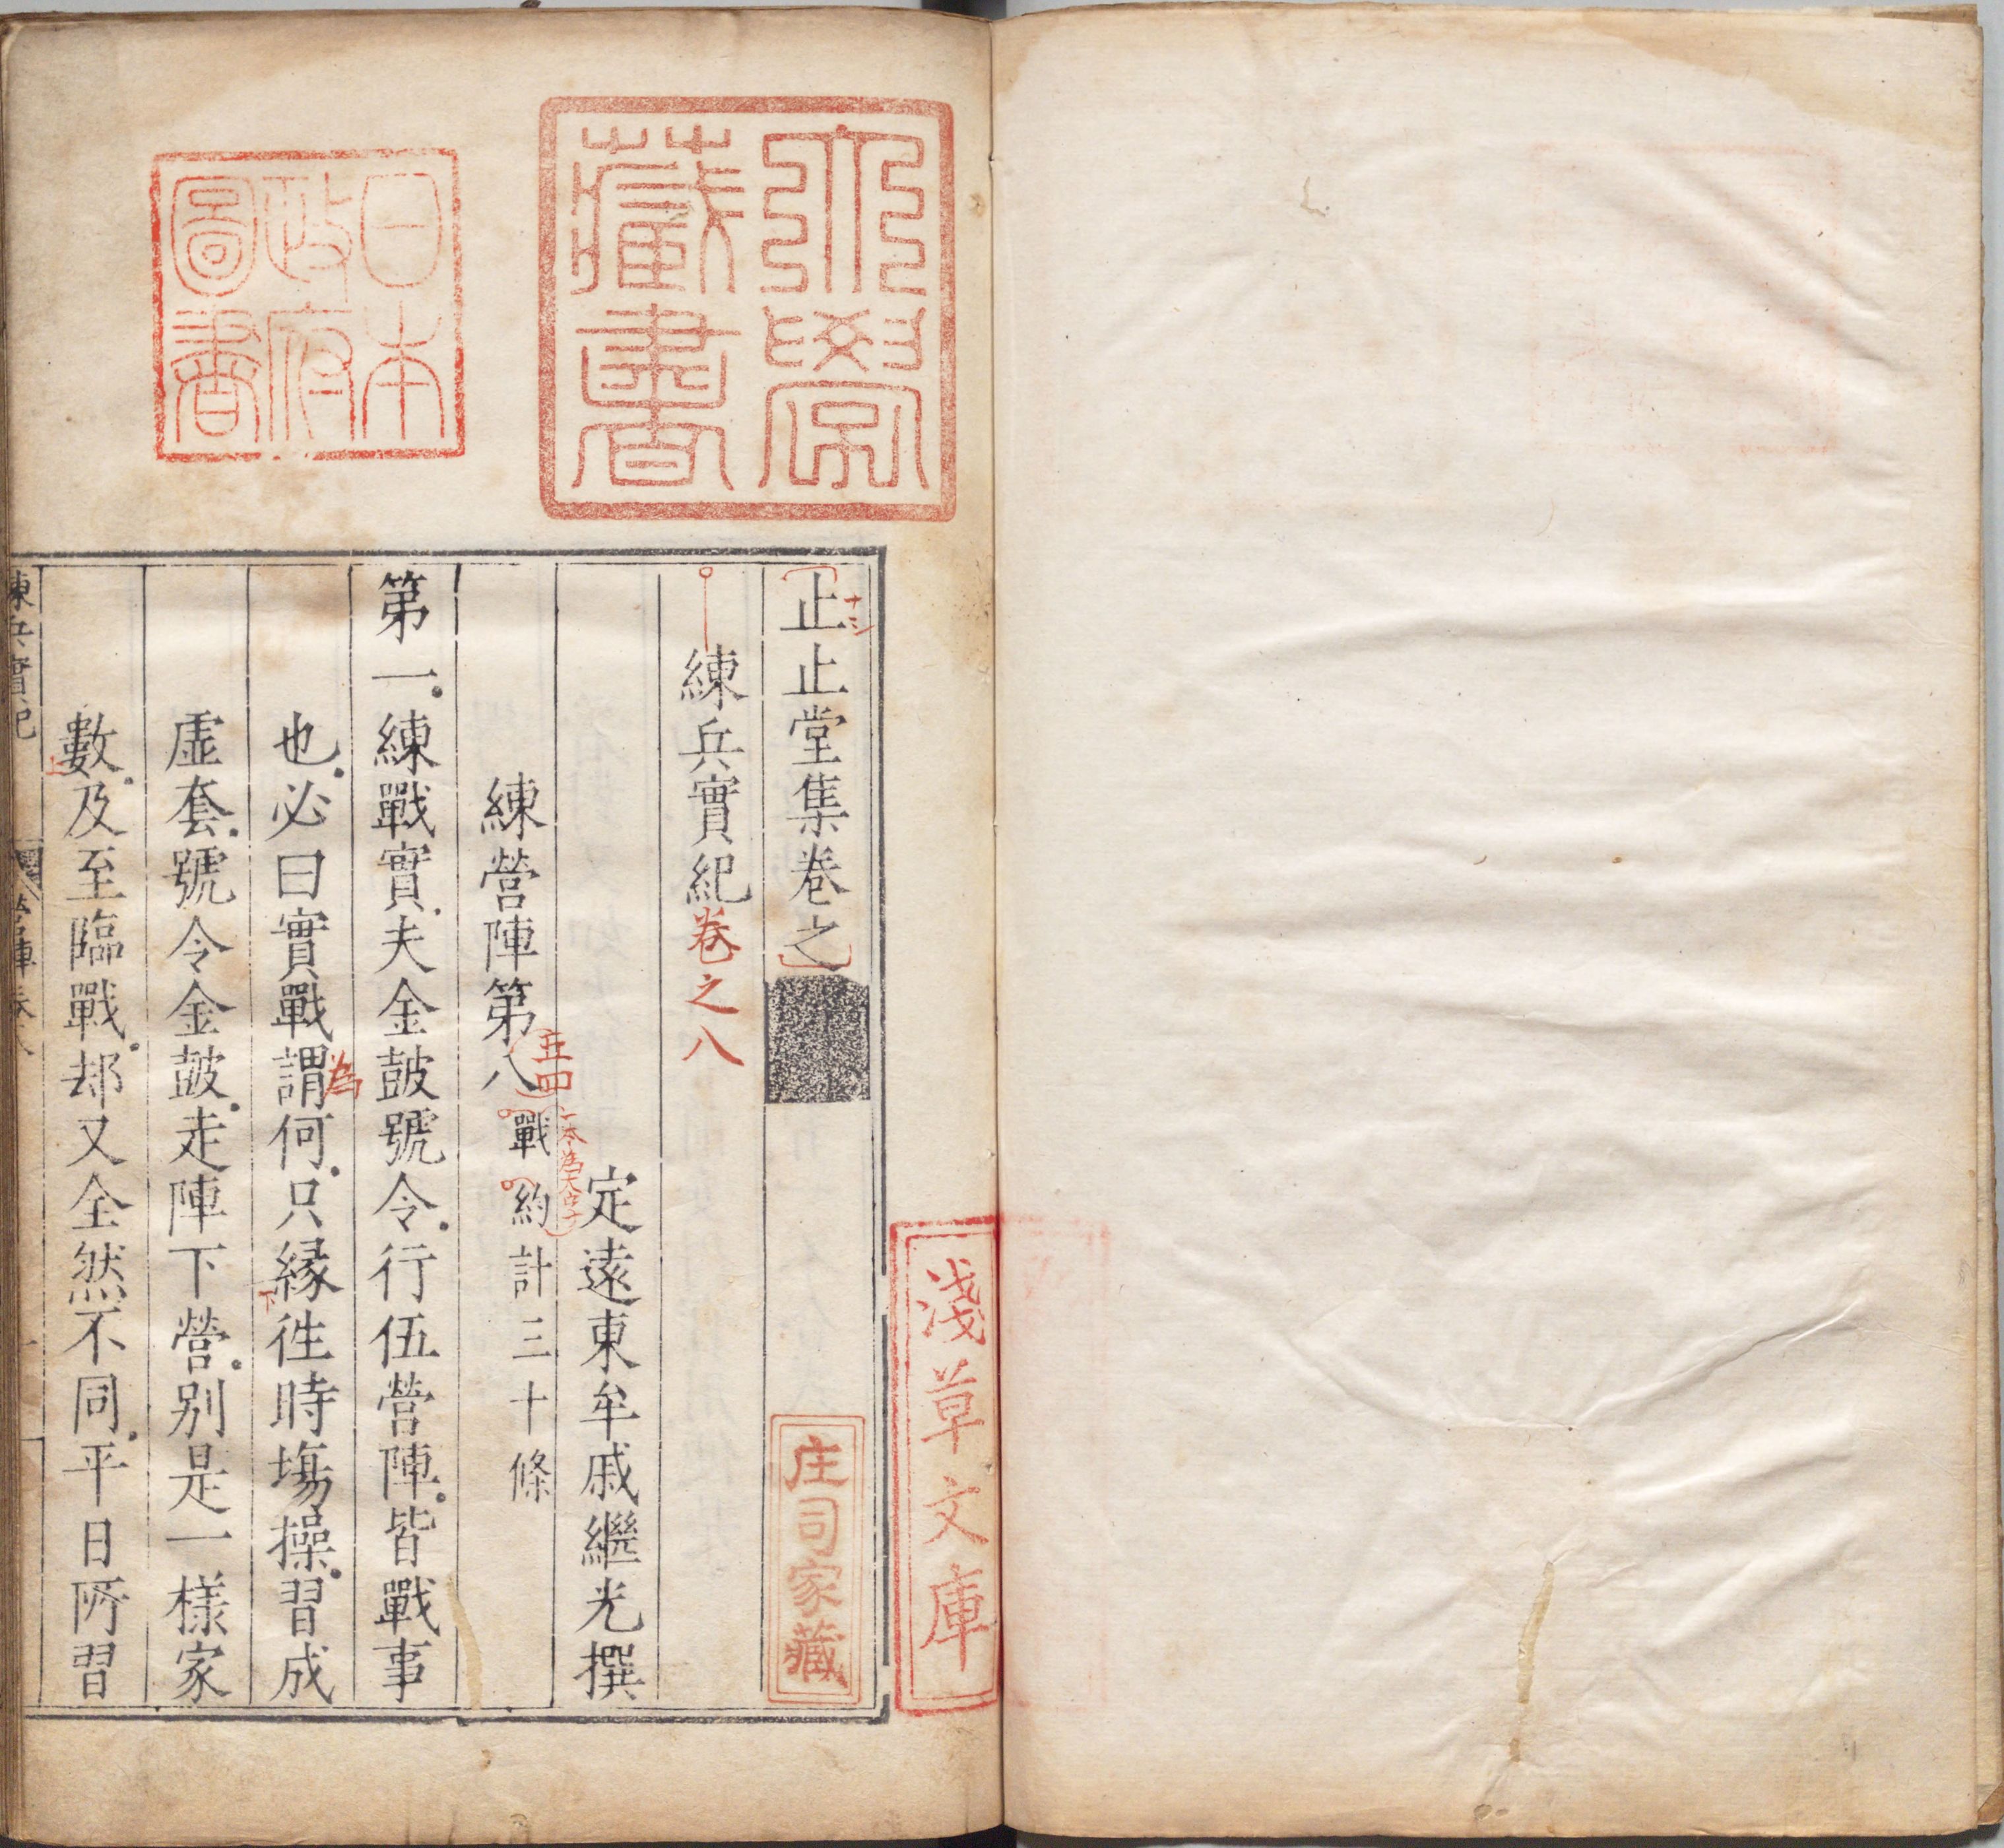 止止堂集卷之
練兵實紀卷之八
定遠東牟戚繼光撰
練營陣第八戰約計三十條
五四
一本為大字
第一練戰實夫金鼓號令行伍營陣皆戰事
也必曰實戰謂何只緣徃時塲操習成
為
下
虛套號令金鼓走陣下營别是一樣家
數及至臨戰却又全然不同平日所習
上
練兵實紀
大學藏書
日本政府圖書
淺草文庫
庄司家藏